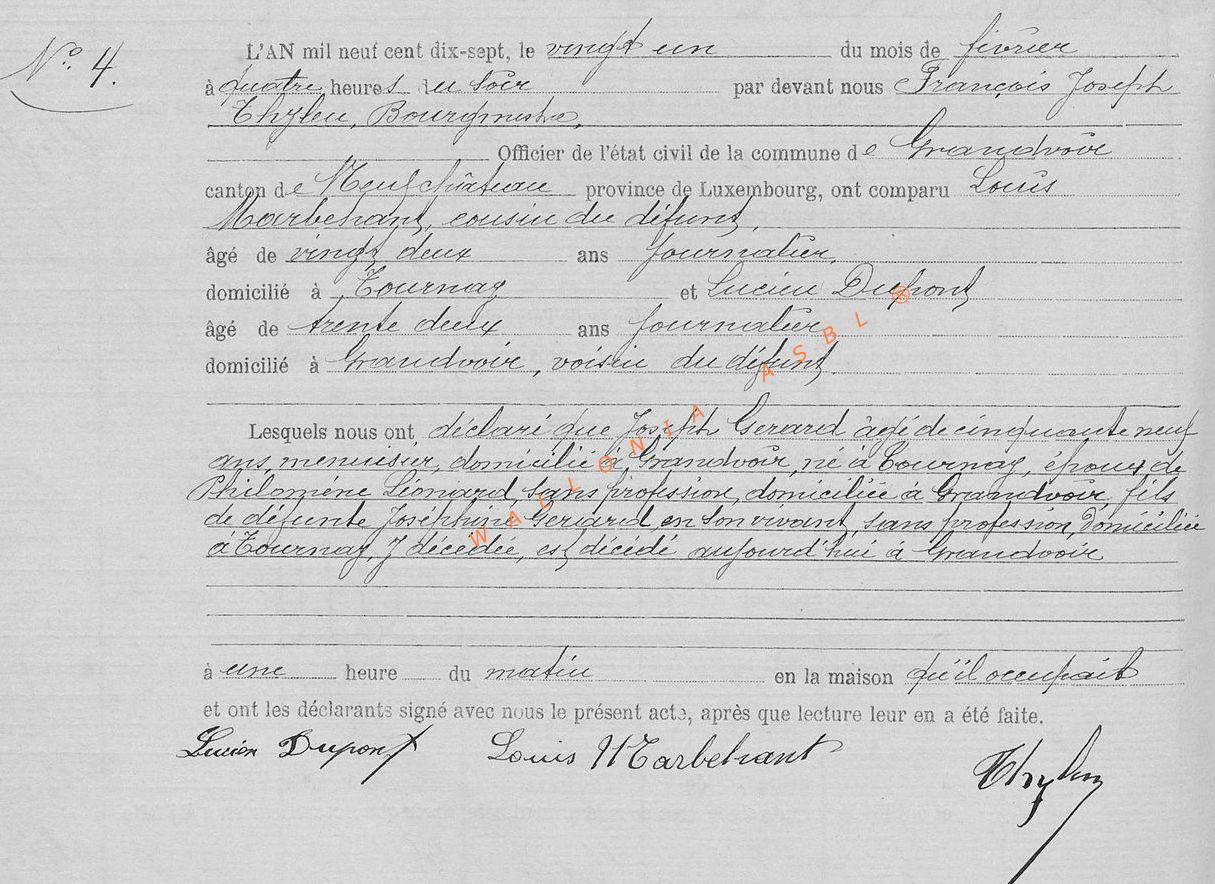 N° 4.
L'AN mil neuf cent dix-sept, le vingt un du mois de février
à quatre heures du soir par devant nous François Joseph
Thyleu, Bourgmestre,
Officier de l'état civil de la commune de Grandvoir
canton de Neufchâteau province de Luxembourg, ont comparu Louis
Marbehant, cousin du défunt,
âgé de vingt deux ans journalier,
domicilié à Tournay et Lucien Dupont
âgé de trente deux ans journalier
domicilié à Grandvoir, voisin du défunt
Lesquels nous ont déclaré que Joseph Gerard âgé de cinquante neuf
ans, menuisier, domicilié à Grandvoir, né à Tournay, époux de
Philomène Léonard, sans profession, domiciliée à Grandvoir, fils
de défunte Joséphine Gerard en son vivant, sans profession, domiciliée
à Tournay, y décédée, est décédé aujourd'hui à Grandvoir
à une heure du matin en la maison qu'il occupait
et ont les déclarants signé avec nous le présent acte, après que lecture leur en a été faite.
Lucien Dupont Louis Marbehant Thyleu
WALLONIA ASBL ®